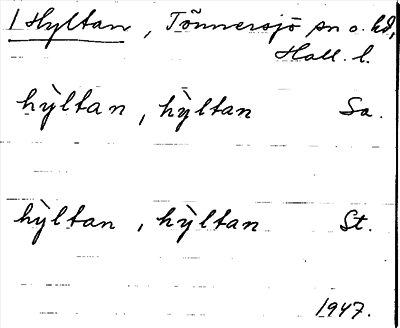 1 Hyltan, Tönnersjö sn o. hd,
Hall. l.
hỳltan, hỳltan Sa.
hỳltan, hỳltan St.
1947.